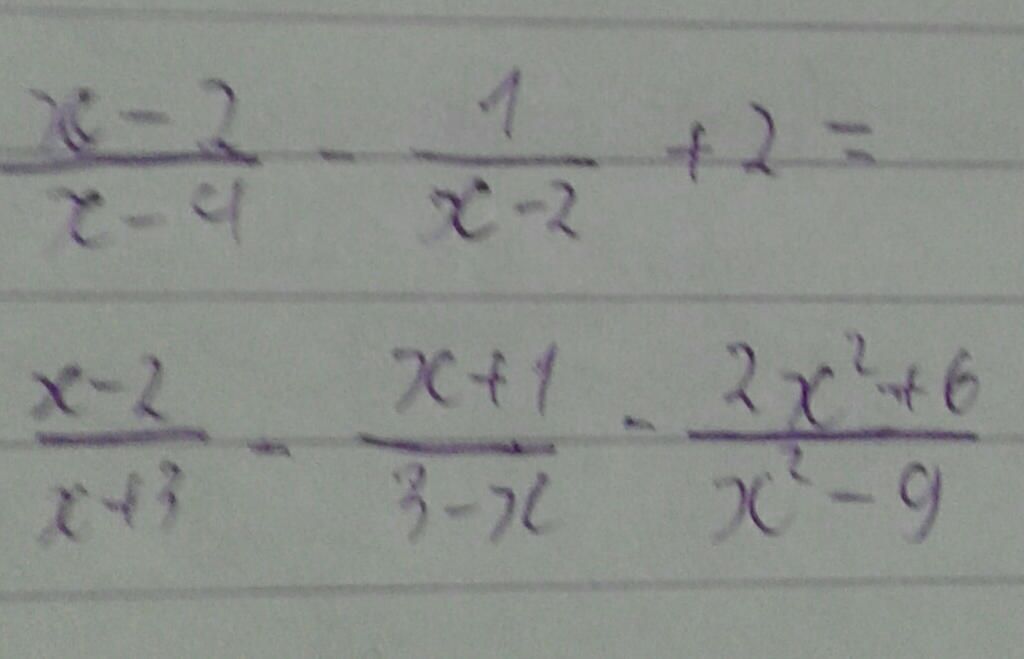 \frac{x-2}{x-4} - \frac{1}{x-2} + 2 =
\frac{x-2}{x+3} - \frac{x+1}{3-x} - \frac{2x^2+6}{x^2-9}